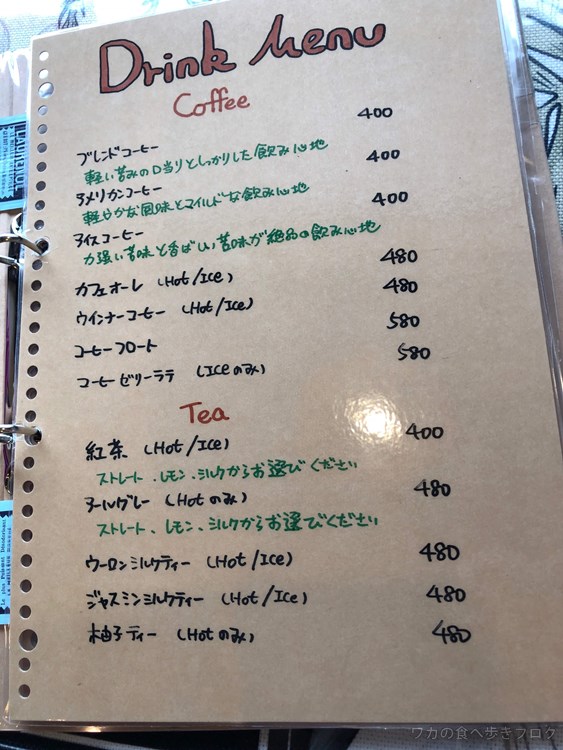 Drink Menu
Coffee
ブレンドコーヒー 400
軽い苦みの口当りとしっかりした飲み心地
アメリカンコーヒー 400
軽やかな風味とマイルドな飲み心地
アイスコーヒー 400
力強い苦味と香ばしい苦味が絶品の飲み心地
カフェオーレ (Hot/Ice) 480
ウインナーコーヒー (Hot/Ice) 480
コーヒーフロート 580
コーヒーゼリーラテ (Iceのみ) 580
Tea
紅茶 (Hot/Ice) 400
ストレート、レモン、ミルクからお選びください
アールグレー (Hotのみ) 480
ストレート、レモン、ミルクからお選びください
ウーロンミルクティー (Hot/Ice) 480
ジャスミンミルクティー (Hot/Ice) 480
柚子ティー (Hotのみ) 480
ワカの食べ歩きブログ